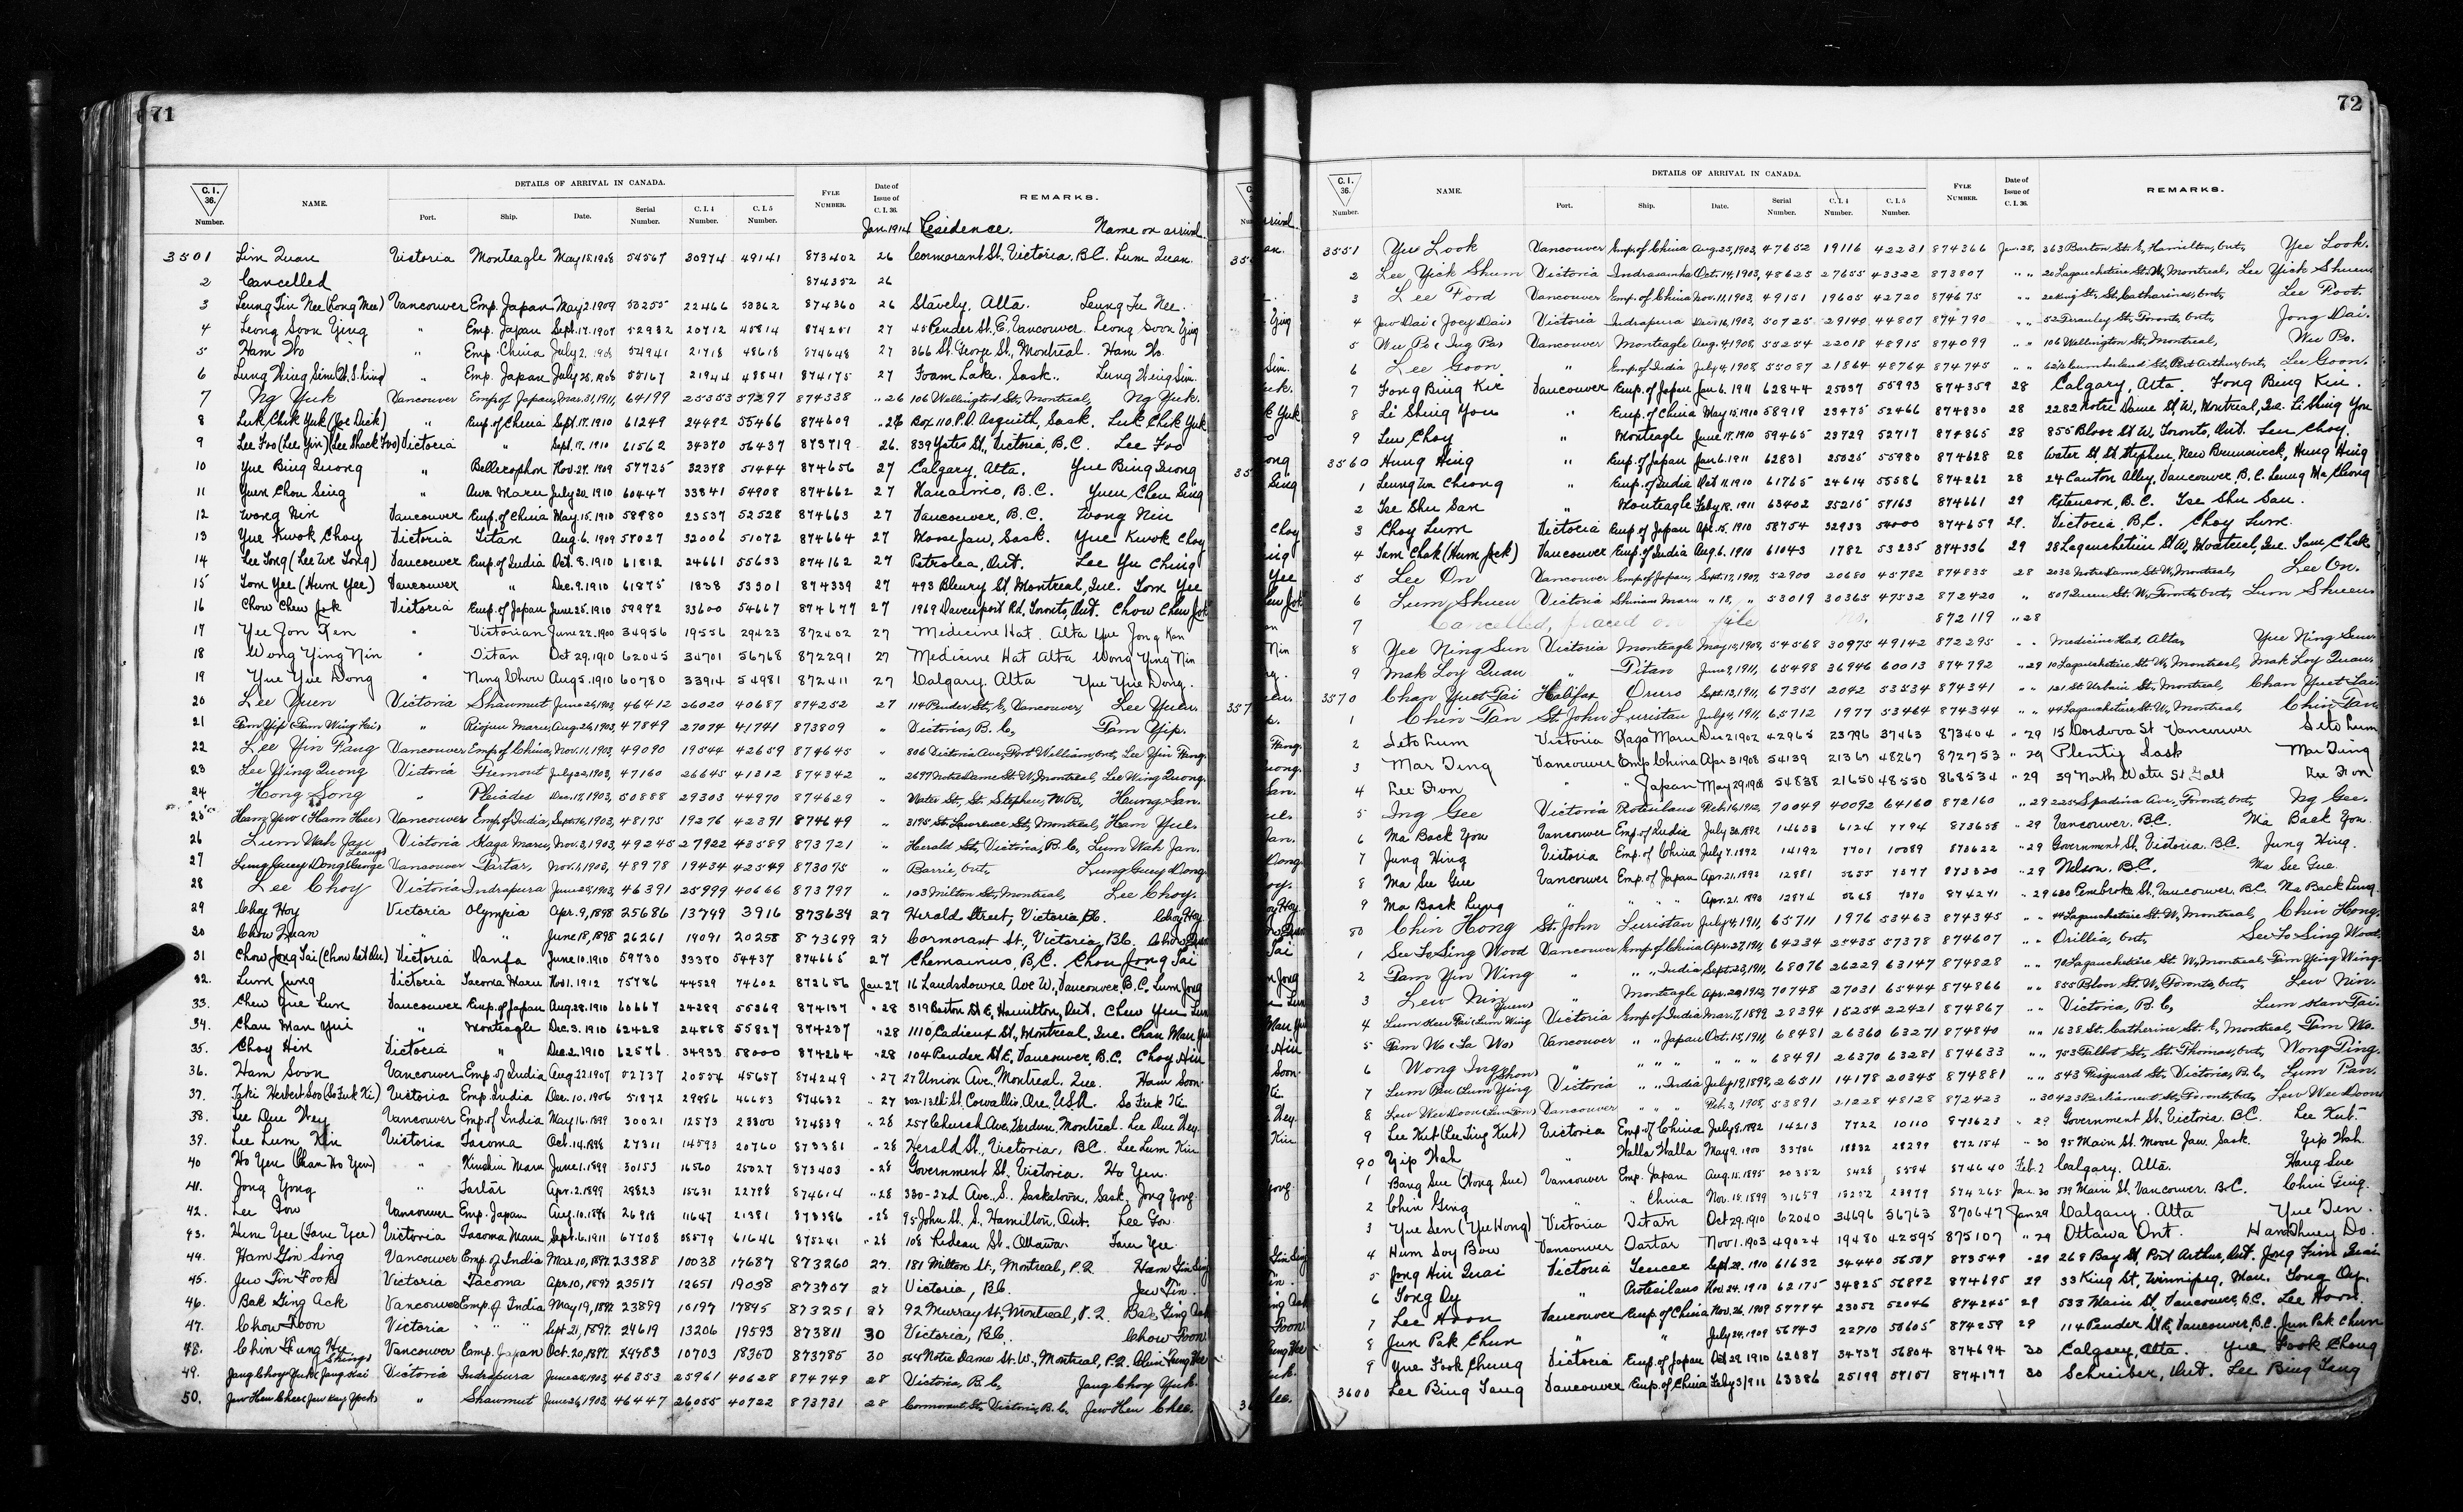 71
C.I. 36. Number. NAME. DETAILS OF ARRIVAL IN CANADA. Port. Ship. Date. Serial Number. C.I.4 Number. C.I.5 Number. FYLE NUMBER. Date of Issue of C.I.36. REMARKS.
Jan. 1914 Residence. Name on arrival.
3501 Lim Quan Victoria Monteagle May 15, 1908 54567 30974 49141 873402 26 Cormorant St. Victoria, B.C. Lum Quan.
2 Cancelled 874352 26
3 Leung Tin Nee (Long Mee) Vancouver Emp. Japan May 2, 1909 22466 874360 26 Stavely, Alta. Leung Tu Nee.
4 Leong Soon Ying " Emp. Japan Sept. 17, 1907 52932 20712 874251 27 45 Pender St. E, Vancouver. Leong Soon Ying
5 Ham Wo " Emp. China July 2, 1908 54941 21718 48618 874648 27 366 St. George St., Montreal. Ham Wo.
6 " Emp. Japan July 25, 1908 55167 21944 48841 874175 27 Foam Lake. Sask.
7 Ng Yuk Vancouver Emp. of Japan, Mar. 31, 1911, 64199 25353 57297 874338 " 26 106 Wellington St., Montreal, Ng Yuk.
8 Luk Chik Yuk (Joe Dick) " Emp. of China Sept. 17, 1910 61249 24492 55466 874609 " 26 Box 110. P.O. Asquith, Sask. Luk Chik Yuk
9 Lee Foo (Lee Yin) (Lee Shack Foo) Victoria " Sept. 17, 1910 61562 34370 56437 873719 26. 839 Yates St., Victoria, B.C. Lee Foo
10 Yue Bing Quong " Bellerophon Nov. 27. 1909 57725 32378 51444 874656 27 Calgary, Alta. Yue Bing Quong
11 Yuen Chou Sing " Awa Maru July 20. 1910 60447 33841 54908 874662 27 Nanaimo, B.C. Yuen Chou Sing
12 Wong Nin Vancouver Emp. of China May. 15. 1910 58980 23537 52528 874663 27 Vancouver, B.C. Wong Nin
13 Yue Kwok Choy Victoria Titan Aug. 6. 1909 57027 32006 51072 874664 27 Moose Jaw, Sask. Yue Kwok Choy
14 Lee Song (Lee We Song) Vancouver Emp. of India Oct. 8. 1910 61812 24661 55633 874162 27 Petrolea, Ont. Lee Yu Ching
15 Tom Yee (Hum Yee) Vancouver " Dec. 9. 1910 61875 1838 53301 874339 27 493 Bleury St, Montreal, Que. Tom Yee
16 Chow Chew Jok Victoria Emp. of Japan June 25. 1910 59972 33600 54667 874677 27 1969 Davenport Rd, Toronto, Ont. Chow Chew Jok
17 Yee Jon Ken " Victorian June 22, 1900 34956 19556 29423 872402 27 Medicine Hat. Alta Yue Jong Kan
18 Wong Ying Nin " Titan Oct 29, 1910 62045 34701 56768 872291 27 Medicine Hat Alta Wong Ying Nin
19 Yue Yue Dong " Ning Chow Aug 5, 1910 60780 33914 54981 872411 27 Calgary. Alta Yue Yue Dong.
20 Lee Yuen Victoria Shawmut June 26, 1903, 46412 26020 40687 874252 27 114 Pender, St, E, Vancouver, Lee Yuen.
21 Tam Yip (Tam Wing Kai) " Riojun Maru, Aug. 26, 1903, 47849 27074 41741 873809 " Victoria, B.C, Tam Yip.
22 Lee Yin Fang Vancouver Emp. of China, Nov. 11, 1903, 49090 19544 42659 874645 " 806 Victoria Ave, Fort William, Ont,
23 Lee Wing Quong Victoria Tremont July 22, 1903, 47160 26645 41312 874342 " 2697 Notre Dame St. W, Montreal, Lee Wing Quong.
24 Hong Song " Pleiades Dec. 17, 1903, 50888 29303 44970 874629 " Water St., St. Stephen, N.B, Heung San.
25 Ham Yew (Ham Hue) Vancouver Emp. of India, Sept. 16, 1903, 48175 19276 42391 874649 " 3195 St. Lawrence St, Montreal, Ham Yue.
26 Lum Wah Jan Victoria Kaga Maru, Nov. 3, 1903, 49245 27922 43589 873721 " Herald St., Victoria, B.C, Lum Wah Jan.
27 Lung Guey Dong (George Leong) Vancouver Tartar, Nov. 1, 1903, 48978 19434 42549 873075 " Barrie, Ont, Lung Guey Dong.
28 Lee Choy Victoria Indrapura June 25, 1903, 46391 25999 40666 873797 " 103 Milton St., Montreal, Lee Choy.
29 Choy Hoy Victoria Olympia Apr. 9, 1898 25686 13749 3916 873634 27 Herald Street, Victoria, B.C. Choy Hoy
30 Chow Quan " " June 18, 1898 26261 14091 20258 873699 27 Cormorant St., Victoria, B.C. Chow Quan
31 Victoria Danfa June 10. 1910 59730 33370 54437 874665 27 Chemainus, B.C. Chow Jong Tai
32. Lum Jung Victoria Tacoma Maru Nov. 1. 1912 75786 44529 74602 872656 Jan 27 16 Landsdowne Ave W, Vancouver, B.C. Lum Jong
33. Chew Yue Lum Vancouver Emp. of Japan Aug. 28. 1910 60667 24289 55269 874137 " 28 319 Barton St E, Hamilton, Ont. Chew Yue Lum
34. Chan Man Yui " Monteagle Dec. 3. 1910 62428 24868 55827 874237 " 28 1110 Cadieux St., Montreal, Que. Chan Man Yui
35. Choy Hin Victoria " Dec. 2. 1910 62576 34933 58000 874264 " 28 104 Pender St E, Vancouver, B.C. Choy Hin
36. Ham Soon Vancouver Emp. of India Aug. 22. 1907 52737 20554 45657 874249 " 27 27 Union Ave., Montreal. Que. Ham Soon.
37. Victoria Emp. India Dec. 10, 1906 51872 29986 46653 874632 " 27 So Fuk Ki
38. Lee Que Hey Vancouver Emp. of India May 16. 1899 30021 12573 23800 874839 " 28 257 Church Ave, Verdun, Montreal. Lee Que Hey.
39. Lee Lum Kin Victoria Tacoma Oct. 14. 1898 27311 14593 20760 873381 " 28 Herald St., Victoria, BC. Lee Lum Kin
40 Ho Yen (Chan Ho Yen) " Kinshiu Maru June 1. 1899 30153 16560 25027 873403 " 28 Government St. Victoria. Ho Yen.
41. Jong Yong " Tartar Apr. 2, 1899 28823 15631 22798 874614 " 28 330-22d Ave., S. Saskatoon, Sask. Jong Yong.
42. Lee Gow Vancouver Emp. Japan Aug. 10, 1898 26918 11647 21381 873386 " 28 95 John St. S., Hamilton, Ont. Lee Gow.
43. Hum Yee (Tam Yee) Victoria Tacoma Maru Sept. 6, 1911 67708 38579 61646 875241 " 28 108 Rideau St. Ottawa. Tam Yee
44. Ham Gin Sing Vancouver Emp. of India Mar. 10, 1897 23388 10038 17687 873260 27. 181 Milton St., Montreal, P.Q. Ham Gin Sing
45. Jew Tin Fook Victoria Tacoma Apr. 10, 1897 23517 12651 19038 873707 27 Victoria, B.C. Jew Tin.
46. Bak Ging Ack Vancouver Emp. of India May 19, 1897 23899 10197 17895 873251 27 92 Murray St., Montreal, P.Q. Bak Ging Ack
47. Chow Toon Victoria " " " Sept. 21, 1897. 24619 13206 19593 873811 30 Victoria, B.C. Chow Toon
48. Chin Fung Hee Vancouver Emp. Japan Oct. 20, 1897. 24983 10703 18360 873785 30 564 Notre Dame St. W., Montreal, P.Q. Chin Fung Hee
49. Jang Choy Yuk (Jang Kai Shing) Victoria Indrapura June 25, 1903, 46353 25961 40628 874749 28 Victoria, B.C, Jang Choy Yuk.
50. Jew Hew Chee (Jew Kay Yock) " Shawmut June 26, 1903, 46447 26055 40722 873731 28 Cormorant, St, Victoria, B.C, Jew Hew Chee.
72
C.I. 36. Number. NAME. DETAILS OF ARRIVAL IN CANADA. Port. Ship. Date. Serial Number. C.I.4 Number. C.I.5 Number. FYLE NUMBER. Date of Issue of C.I.36. REMARKS.
3551 Yee Look Vancouver Emp. of China Aug. 25, 1903, 47652 19116 42231 874366 Jan. 28, 263 Barton St. E, Hamilton, Ont, Yee Look.
2 Lee Yick Shum Victoria Indrasamha Oct. 14, 1903, 48625 27655 43322 873807 " " 20 Lagauchetiere St. W, Montreal, Lee Yick Shuen.
3 Lee Ford Vancouver Emp. of China Nov. 11, 1903, 49151 19605 42720 874675 " " King St., St. Catharines, Ont, Lee Foot.
4 Jew Dai (Joey Dai) Victoria Indrapura Dec. 16, 1903, 50725 29140 44807 874790 " " 52 Teraulay St, Toronto, Ont, Jong Dai.
5 Wu Po (Ing Pa) Vancouver Monteagle Aug. 4, 1908, 55254 22018 48915 874099 " " 106 Wellington St., Montreal, Wu Po.
6 Lee Goon " Emp. of India July 4, 1908, 55087 21864 48764 874745 " " Cumberland St, Port Arthur, Ont, Lee Goon.
7 Fong Bing Kie Vancouver Emp. of Japan Jan. 6. 1911 62844 25037 55993 874359 28 Calgary, Alta. Fong Bing Kiu.
8 Li Shing You " Emp. of China May 15, 1910 58918 23475 52466 874830 28 2282 Notre Dame St W, Montreal, Que. Li Shing You
9 Leu Choy " Monteagle June 17. 1910 59465 23729 52717 874865 28 855 Bloor St W, Toronto, Ont. Leu Choy.
3560 Hung Hing " Emp. of Japan Jan. 6. 1911 62831 25025 55980 874628 28 Water St. St. Stephen, New Brunswick, Hung Hing
1 Leung Un Cheong " Emp. of India Oct 11. 1910 61765 24614 55586 874262 28 24 Canton Alley, Vancouver, B.C. Leung Un Cheong
2 Tse Shu San " Monteagle Feb'y 18. 1911 63402 25215 57163 874661 29 B.C. Tse Shu San.
3 Choy Lum Victoria Emp. of Japan Apr. 15. 1910 58754 32933 54000 874659 29. Victoria, B.C. Choy Lum.
4 Tam Chak (Hum Jack) Vancouver Emp. of India Aug. 6. 1910 61043 1782 53235 874336 29 28 Lagauchetiere St W, Montreal, Que. Tam Chak
5 Lee On Vancouver Emp. of Japan, Sept. 17, 1907, 52900 20680 45782 874835 28 2032 Notre Dame, St. W, Montreal, Lee On.
6 Lum Shuen Victoria Shinano Maru " 18, " 53019 30365 47532 872420 " 507 Queen St. W, Toronto, Ont, Lum Shuen.
7 Cancelled, placed on file no. 872119 " 28
8 Yee Ning Sun Victoria Monteagle May 15, 1908, 54568 30975 49142 872295 " " Medicine Hat, Alta, Yue Ning Sun.
9 Mak Loy Quan " Titan June 9, 1911, 65498 36946 60013 874792 " 29 10 Lagauchetiere St. W, Montreal, Mak Loy Quan.
3570 Chan Yuet Tai Halifax Oruro Sept. 12, 1911, 67351 2042 53534 874341 " " 121 St. Urbain St., Montreal, Chan Yuet Tai.
1 Chin Tan St. John Luristan July 4, 1911, 65712 1977 53464 874344 " " 44 Lagauchetiere St. W, Montreal, Chin Tan
2 Seto Lum Victoria Kaga Maru Dec 2 1902 42965 23796 37463 873404 " 29 15 Cordova St Vancouver Seto Lum
3 Mar Ding Vancouver Emp China Apr 3 1908 54139 21367 48267 872753 " 29 Plenty Sask Mar Ding
4 Lee Fon " " Japan May 29, 1908 54838 21650 48550 868534 " 29 39 North Water St Galt Lee Fon
5 Ing Gee Victoria Protesilaus Feb. 16, 1912, 70049 40092 64160 872160 " 29 225 Spadina Ave, Toronto, Ont, Ng Gee.
6 Ma Back You Vancouver Emp. of India July 30. 1892 14633 6124 7794 873658 " 29 Vancouver. B.C. Ma Back You.
7 Jung Hing Victoria Emp. of China July 7. 1892 14192 7701 10089 870622 " 29 Government St. Victoria. B.C. Jung Hing.
8 Ma See Gue Vancouver Emp. of Japan Apr. 21. 1892 12881 5655 7377 873320 " 29 Nelson. B.C. Ma See Gue.
9 Ma Back Lung " " " " Apr. 21. 1892 12874 5648 7370 874271 " 29 600 Pembroke St. Vancouver. B.C. Ma Back Lung.
80 Chin Hong St. John Luristan July 4, 1911, 65711 1976 53463 874345 " " 44 Lagauchetiere St. W, Montreal, Chin Hong.
1 See To Sing Wood Vancouver Emp. of China Apr. 27, 1911, 64234 25435 57378 874607 " " Orillia, Ont, See To Sing Wood.
2 Tam Yin Wing " " " India Sept. 23, 1911, 68076 26229 63147 874828 " " 70 Lagauchetiere St. W, Montreal, Tam Ying Wing.
3 Lew Nin " Monteagle Apr. 20, 1912, 70748 27031 65444 874866 " " 855 Bloor St. W, Toronto, Ont, Lew Nin.
4 Lum Kew Tai (Lum Wing Yuen) Victoria Emp. of India Mar. 7, 1899 28394 15254 22421 874867 " " Victoria, B.C, Lum Kew Tai.
5 Tam Wo (La Wo) Vancouver " " Japan Oct. 15, 1911, 68481 26360 63271 874840 " " 1638 St. Catherine St. E, Montreal, Tam Wo.
6 Wong Ing " " " " " " " 68491 26370 63281 874633 " " 753 Talbot St, St. Thomas, Ont, Wong Ping.
7 Lum Pan (Lum Ying Shon) Victoria " " India July 19, 1898, 26511 14178 20345 874881 " " 543 Fisguard St. Victoria, B.C, Lum Pan.
8 Lew Wee Doon (Lew Don) Vancouver " " " Feb. 3, 1908, 53891 21228 48128 872423 " 30 423 Parliament St, Toronto, Ont, Lew Wee Doon
9 Lee Kut (Lee Ling Kut) Victoria Emp. of China July 8, 1892 14213 7722 10110 873623 " 29 Government St. Victoria B.C. Lee Kut.
90 Yip Wah " Walla Walla May 9. 1900 33706 18832 28299 872154 " 30 95 Main St. Moose Jaw. Sask. Yip Wah.
1 Bang Sue (Hong Sue) Vancouver Emp. Japan Aug. 11. 1895 20352 5428 5584 874640 Feb. 2 Calgary. Alta. Hang Sue
2 Chin Ging " " China Nov. 15. 1899 31659 23979 874265 Jan. 30 539 Main St. Vancouver. B.C. Chin Ging.
3 Yue Sen (Yue Hong) Victoria Titan Oct 29, 1910 62040 34696 56763 870647 Jan 29 Calgary. Alta Yue Ten.
4 Hum Soy Bow Vancouver Tartar Nov 1. 1903 49024 19480 42595 875107 " 29 Ottawa Ont. Ham Shuey Do.
5 Jong Hin Quai Victoria Teucer Sept. 28. 1910 61632 34440 56507 873549 " 29 268 Bay St, Port Arthur, Ont. Jong Finn Quai
6 Tong Oy " Protesilaus Nov. 24. 1910 62175 34825 56892 874695 29 33 King St, Winnipeg, Man. Tong Oy.
7 Lee Hoon Vancouver Emp. of China Nov. 26, 1909 57774 23052 52046 874245 29 533 Main St, Vancouver, B.C. Lee Hoon.
8 Jun Pak Chun " " July 24, 1909 56743 22710 874259 29 114 Pender St E, Vancouver, B.C. Jun Pak Chun
9 Yue Fook Chung Victoria Emp. of Japan Oct 29. 1910 62087 34737 56804 874694 30 Calgary, Alta. Yue Fook Chong
3600 Lee Bing Tang Vancouver Emp. of China Feb'y 3, 1911 63386 25199 57151 874177 30 Schreiber, Ont. Lee Bing Teng